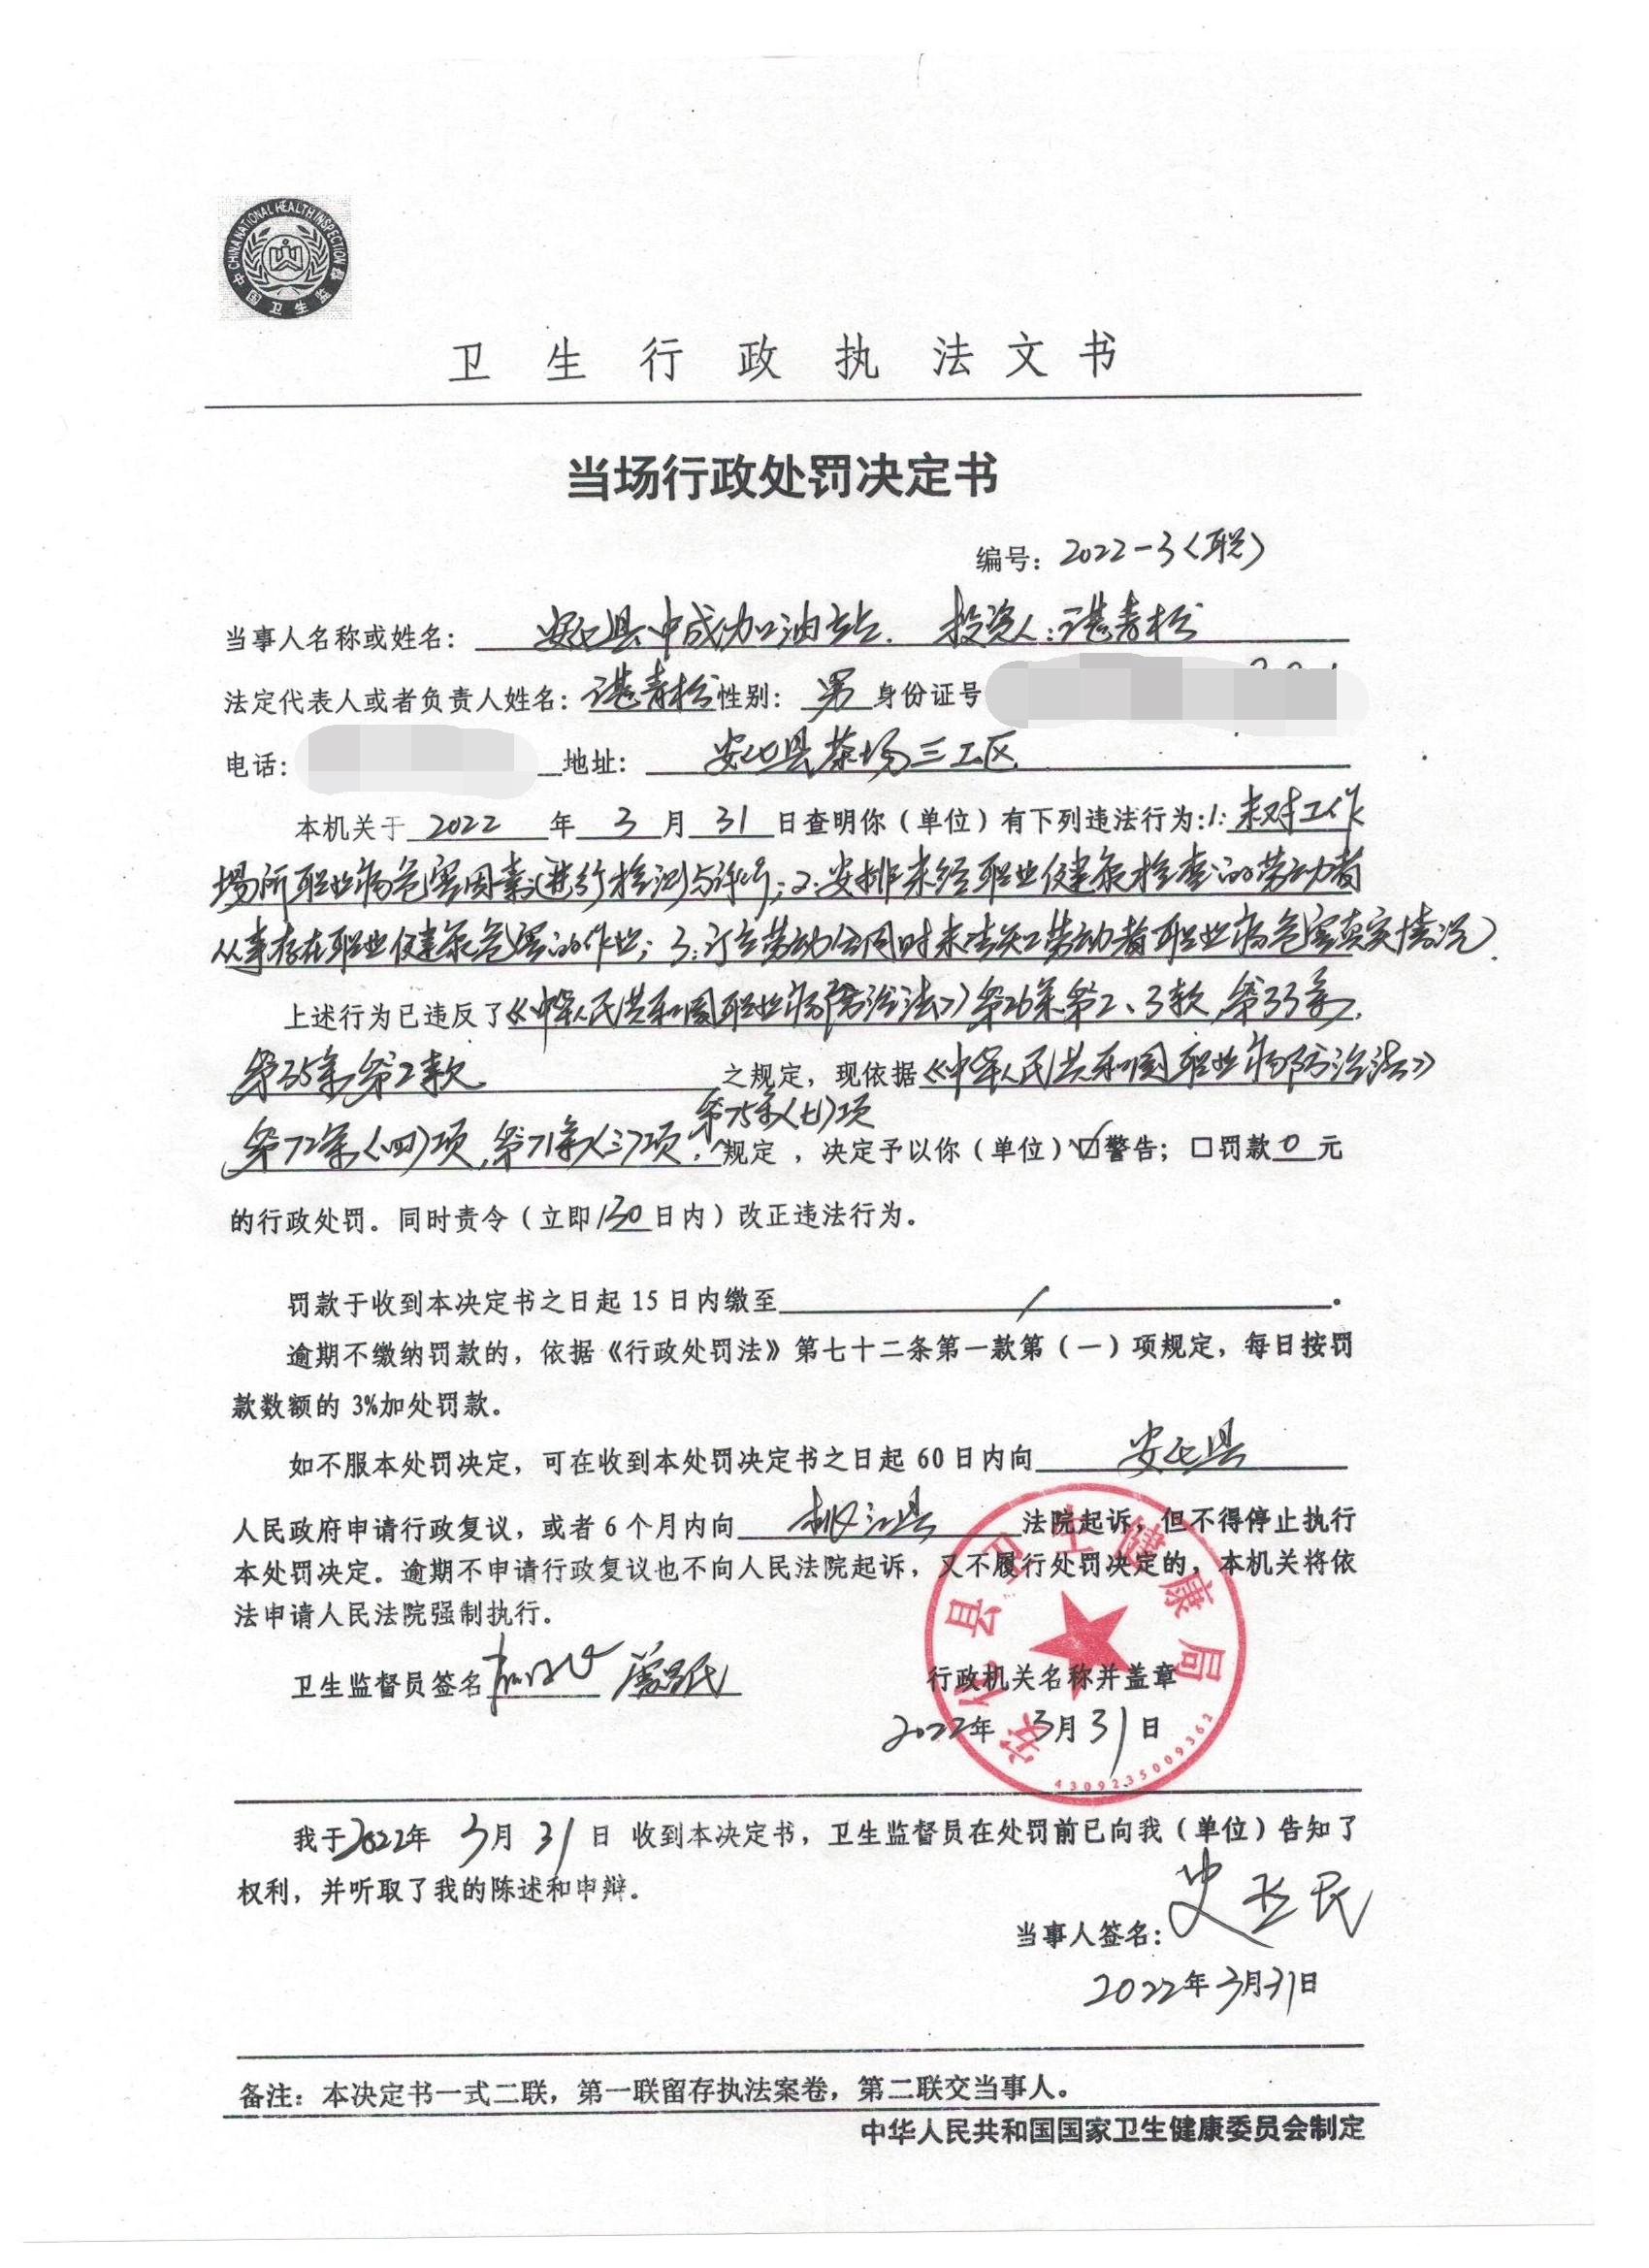 CHINA NATIONAL HEALTH INSPECTION
中国卫生监督
卫生行政执法文书
当场行政处罚决定书
编号：2022-3〈职〉
当事人名称或姓名：安化县中成加油站. 投资人：谌青松
法定代表人或者负责人姓名：谌青松 性别：男 身份证号
电话： 地址：安化县茶场三工区
本机关于 2022 年 3 月 31 日查明你（单位）有下列违法行为：1：未对工作
场所职业病危害因素进行检测与评价；2：安排未经职业健康检查的劳动者
从事存在职业健康危害的作业；3：订立劳动合同时未告知劳动者职业病危害真实情况.
上述行为已违反了《中华人民共和国职业病防治法》第26条第2、3款，第33条，
第35条第2款 之规定，现依据《中华人民共和国职业病防治法》
第75条〈七〉项
第72条〈四〉项，第71条〈三〉项，规定，决定予以你（单位）☑警告；□罚款 0 元
的行政处罚。同时责令（立即/30日内）改正违法行为。
罚款于收到本决定书之日起 15 日内缴至 / 。
逾期不缴纳罚款的，依据《行政处罚法》第七十二条第一款第（一）项规定，每日按罚
款数额的 3%加处罚款。
如不服本处罚决定，可在收到本处罚决定书之日起 60 日内向 安化县
人民政府申请行政复议，或者 6 个月内向 桃江县 法院起诉，但不得停止执行
本处罚决定。逾期不申请行政复议也不向人民法院起诉，又不履行处罚决定的，本机关将依
法申请人民法院强制执行。
卫生监督员签名
行政机关名称并盖章
2022年 3月31日
安化县卫生健康局
4309235009362
我于2022年 3月 31 日 收到本决定书，卫生监督员在处罚前已向我（单位）告知了
权利，并听取了我的陈述和申辩。
当事人签名：
2022年3月31日
备注：本决定书一式二联，第一联留存执法案卷，第二联交当事人。
中华人民共和国国家卫生健康委员会制定